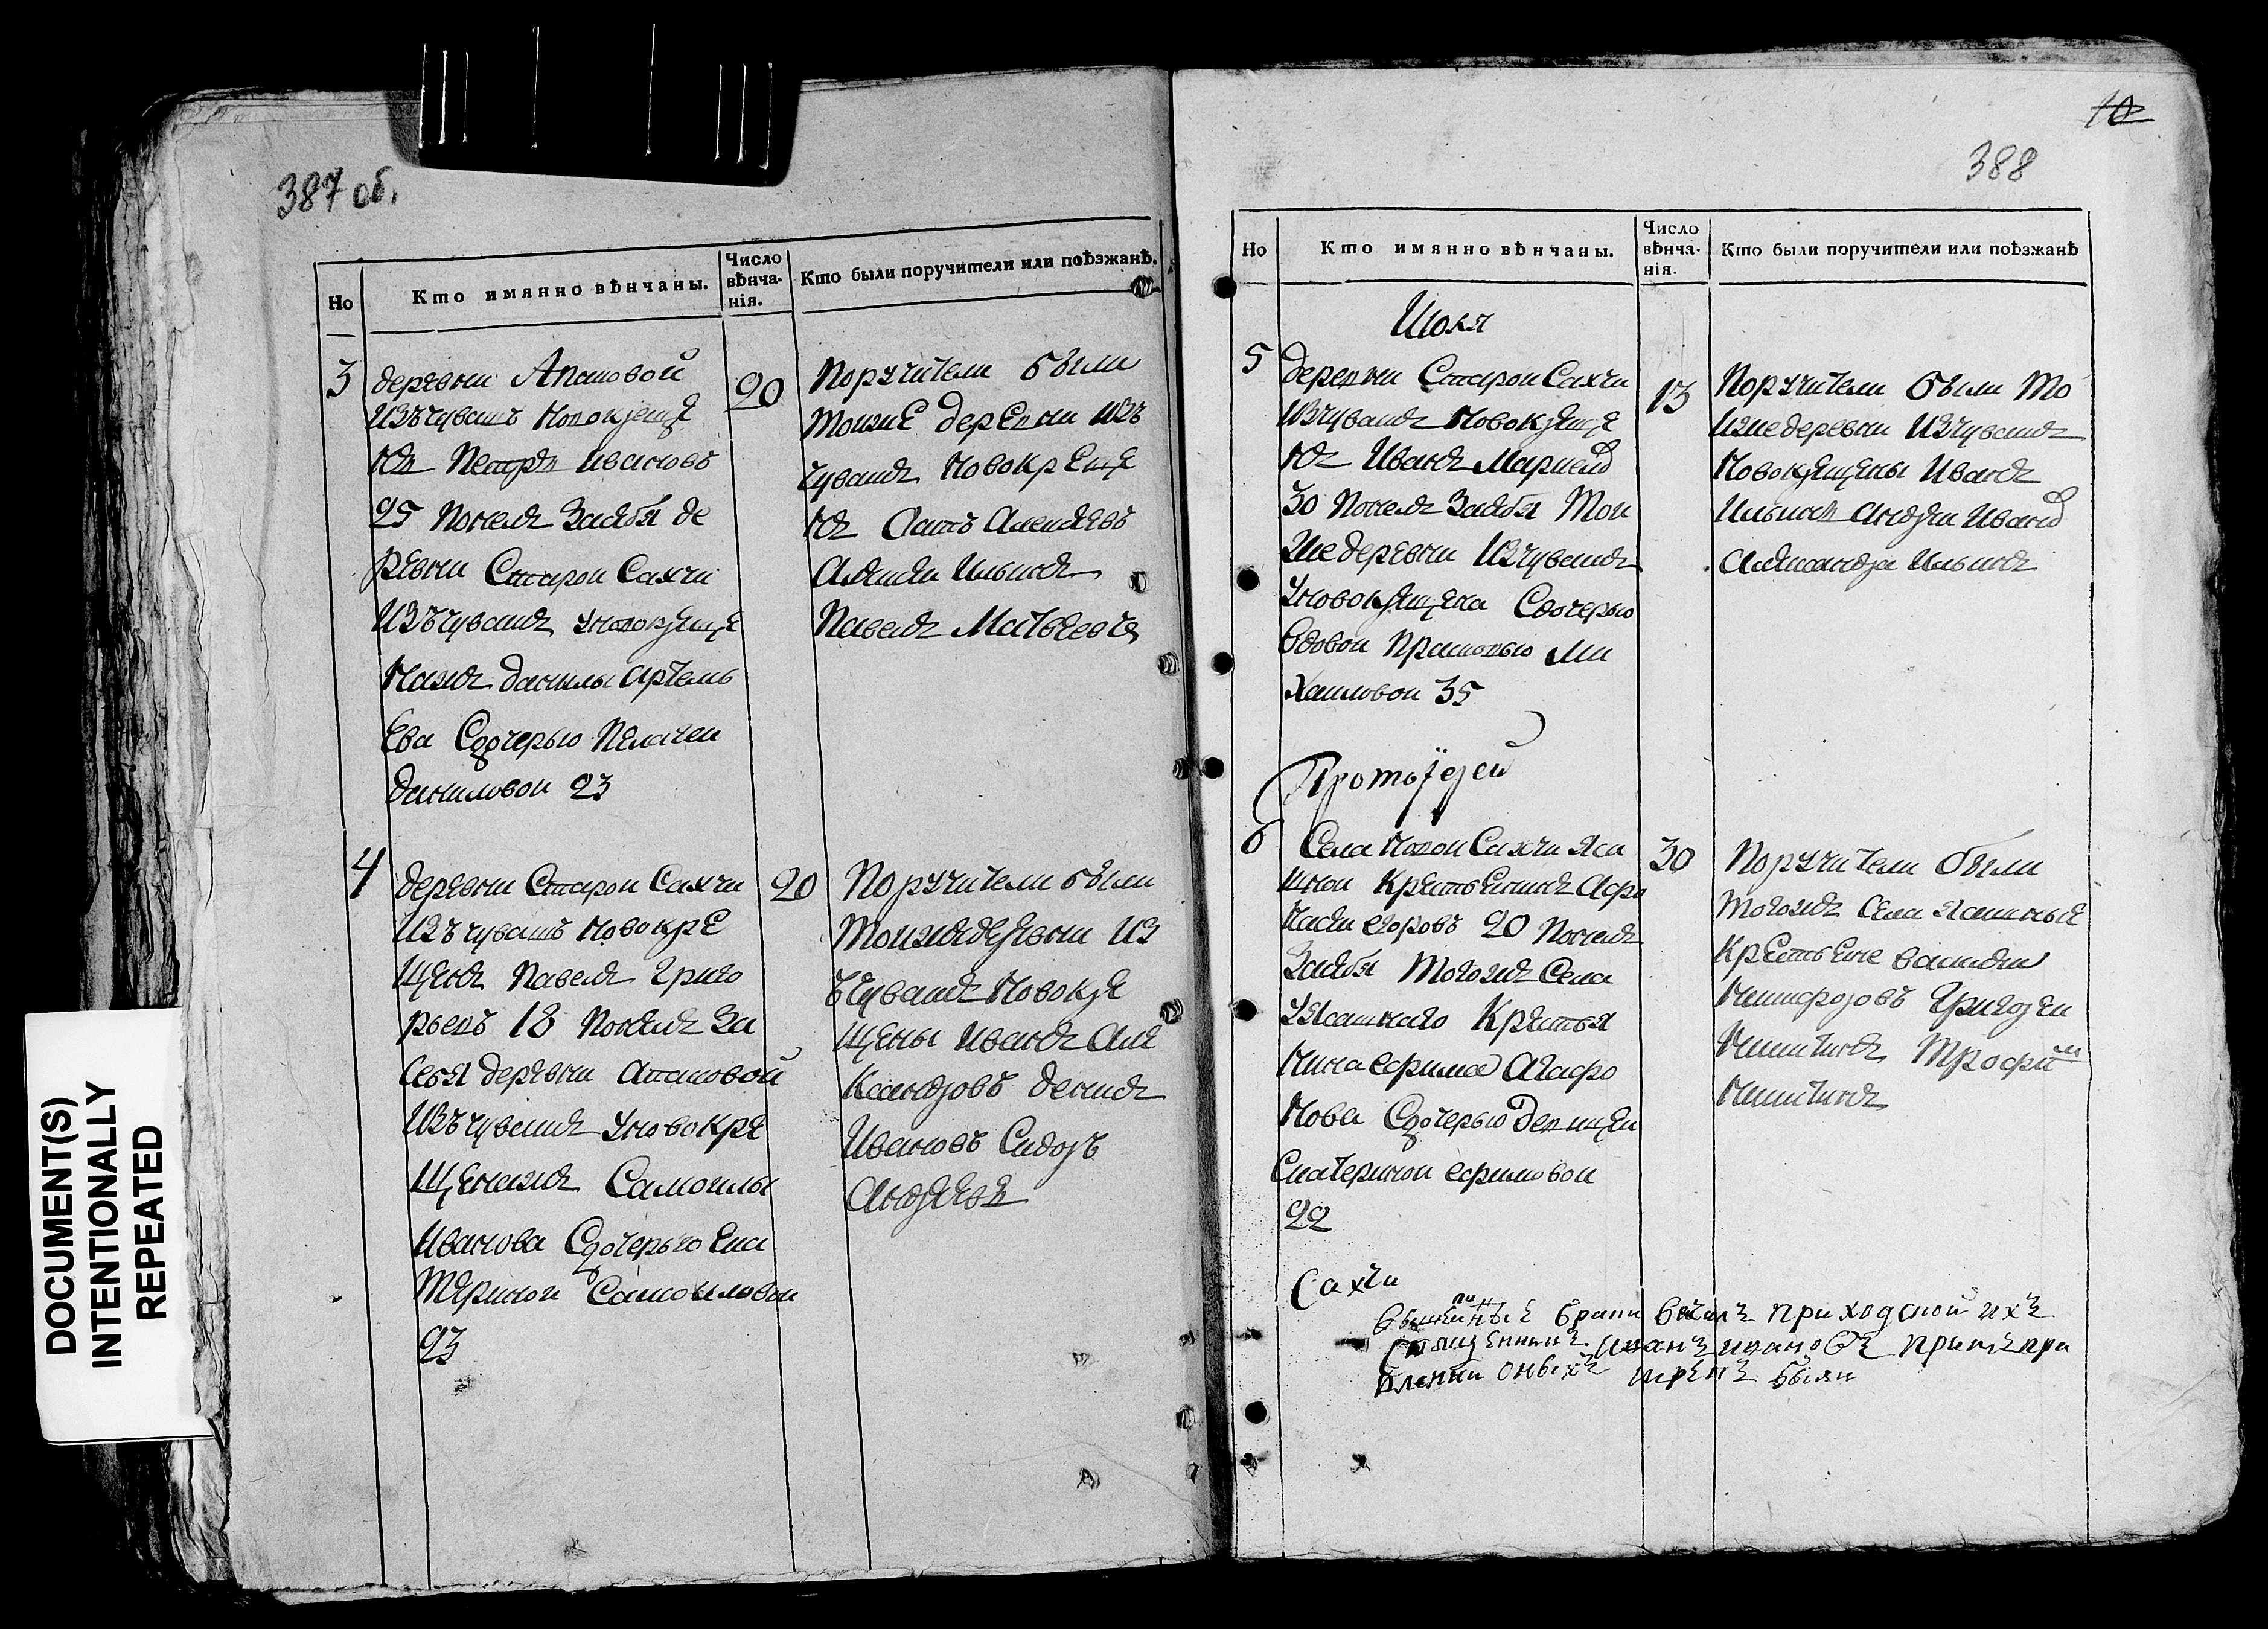 387 об.
Но
Кто имянно вѣнчаны.
Число вѣнча-нія.
Кто были поручители или поѣзжанѣ.
3
деревни Апаковой
изъ чувашъ новокреще
нъ Петръ Ивановъ
25 понелъ за себя де
ревни Старои Сахчи
изъ чувашъ уновокреще
нажъ данилы артемь
ева Сдочерью Пелагеи
даниловои 23
20
Поручители были
тоиже деревни изъ
чувашъ новокреще
нъ
Алексѣи Ильинъ
Павелъ Матвеевъ
4
деревни Старои Сахчи
изъ чувашъ новокре
щенъ Павелъ Григо
рьевъ 18 понелъ за
себя деревни апаковой
изъ чувашъ уновокре
щенажъ Самоилы
Иванова Сдочерью Ека
териной Самоиловои
23
20
Поручители были
тоижедеревни из
ъчувашъ новокре
щены Иванъ Але
ксандровъ денисъ
Ивановъ Сидоръ
Андреевъ
10
388
Но
Кто имянно вѣнчаны.
Число вѣнча-нія.
Кто были поручители или поѣзжанѣ
Июля
5
деревни Старои Сахчи
изчувашъ новокреще
нъ Иванъ
30 понелъ за себя тои
же деревни изчувашъ
уновокрещена Сдочерью
вдовои прасковью ми
хаиловои 35
13
Поручители были то
иже деревни изчувашъ
новокрещены Иванъ
Ильинъ андреи Иванъ
Александръ Ильинъ
Протоіерей
6
Села новои Сахчи яса
шнои крестьенинъ Афо
насеи егоровъ 20 понелъ
за себя тогожъ Села
уясашнаго крестья
нина ефима агафо
нова Сдочерью девицеи
Екатериной ефимовои
22
30
Поручители были
тогожъ села ясашные
крестьене василеи
никифоровъ Григореи
никитинъ Трофим
никитинъ
Сахчи
вышепи нные браки венчалъ приходской ихъ
священникъ иванъ ивановъ притъ при
вленни оныхъ трезъ были
DOCUMENT(S)
INTENTIONALLY
REPEATED